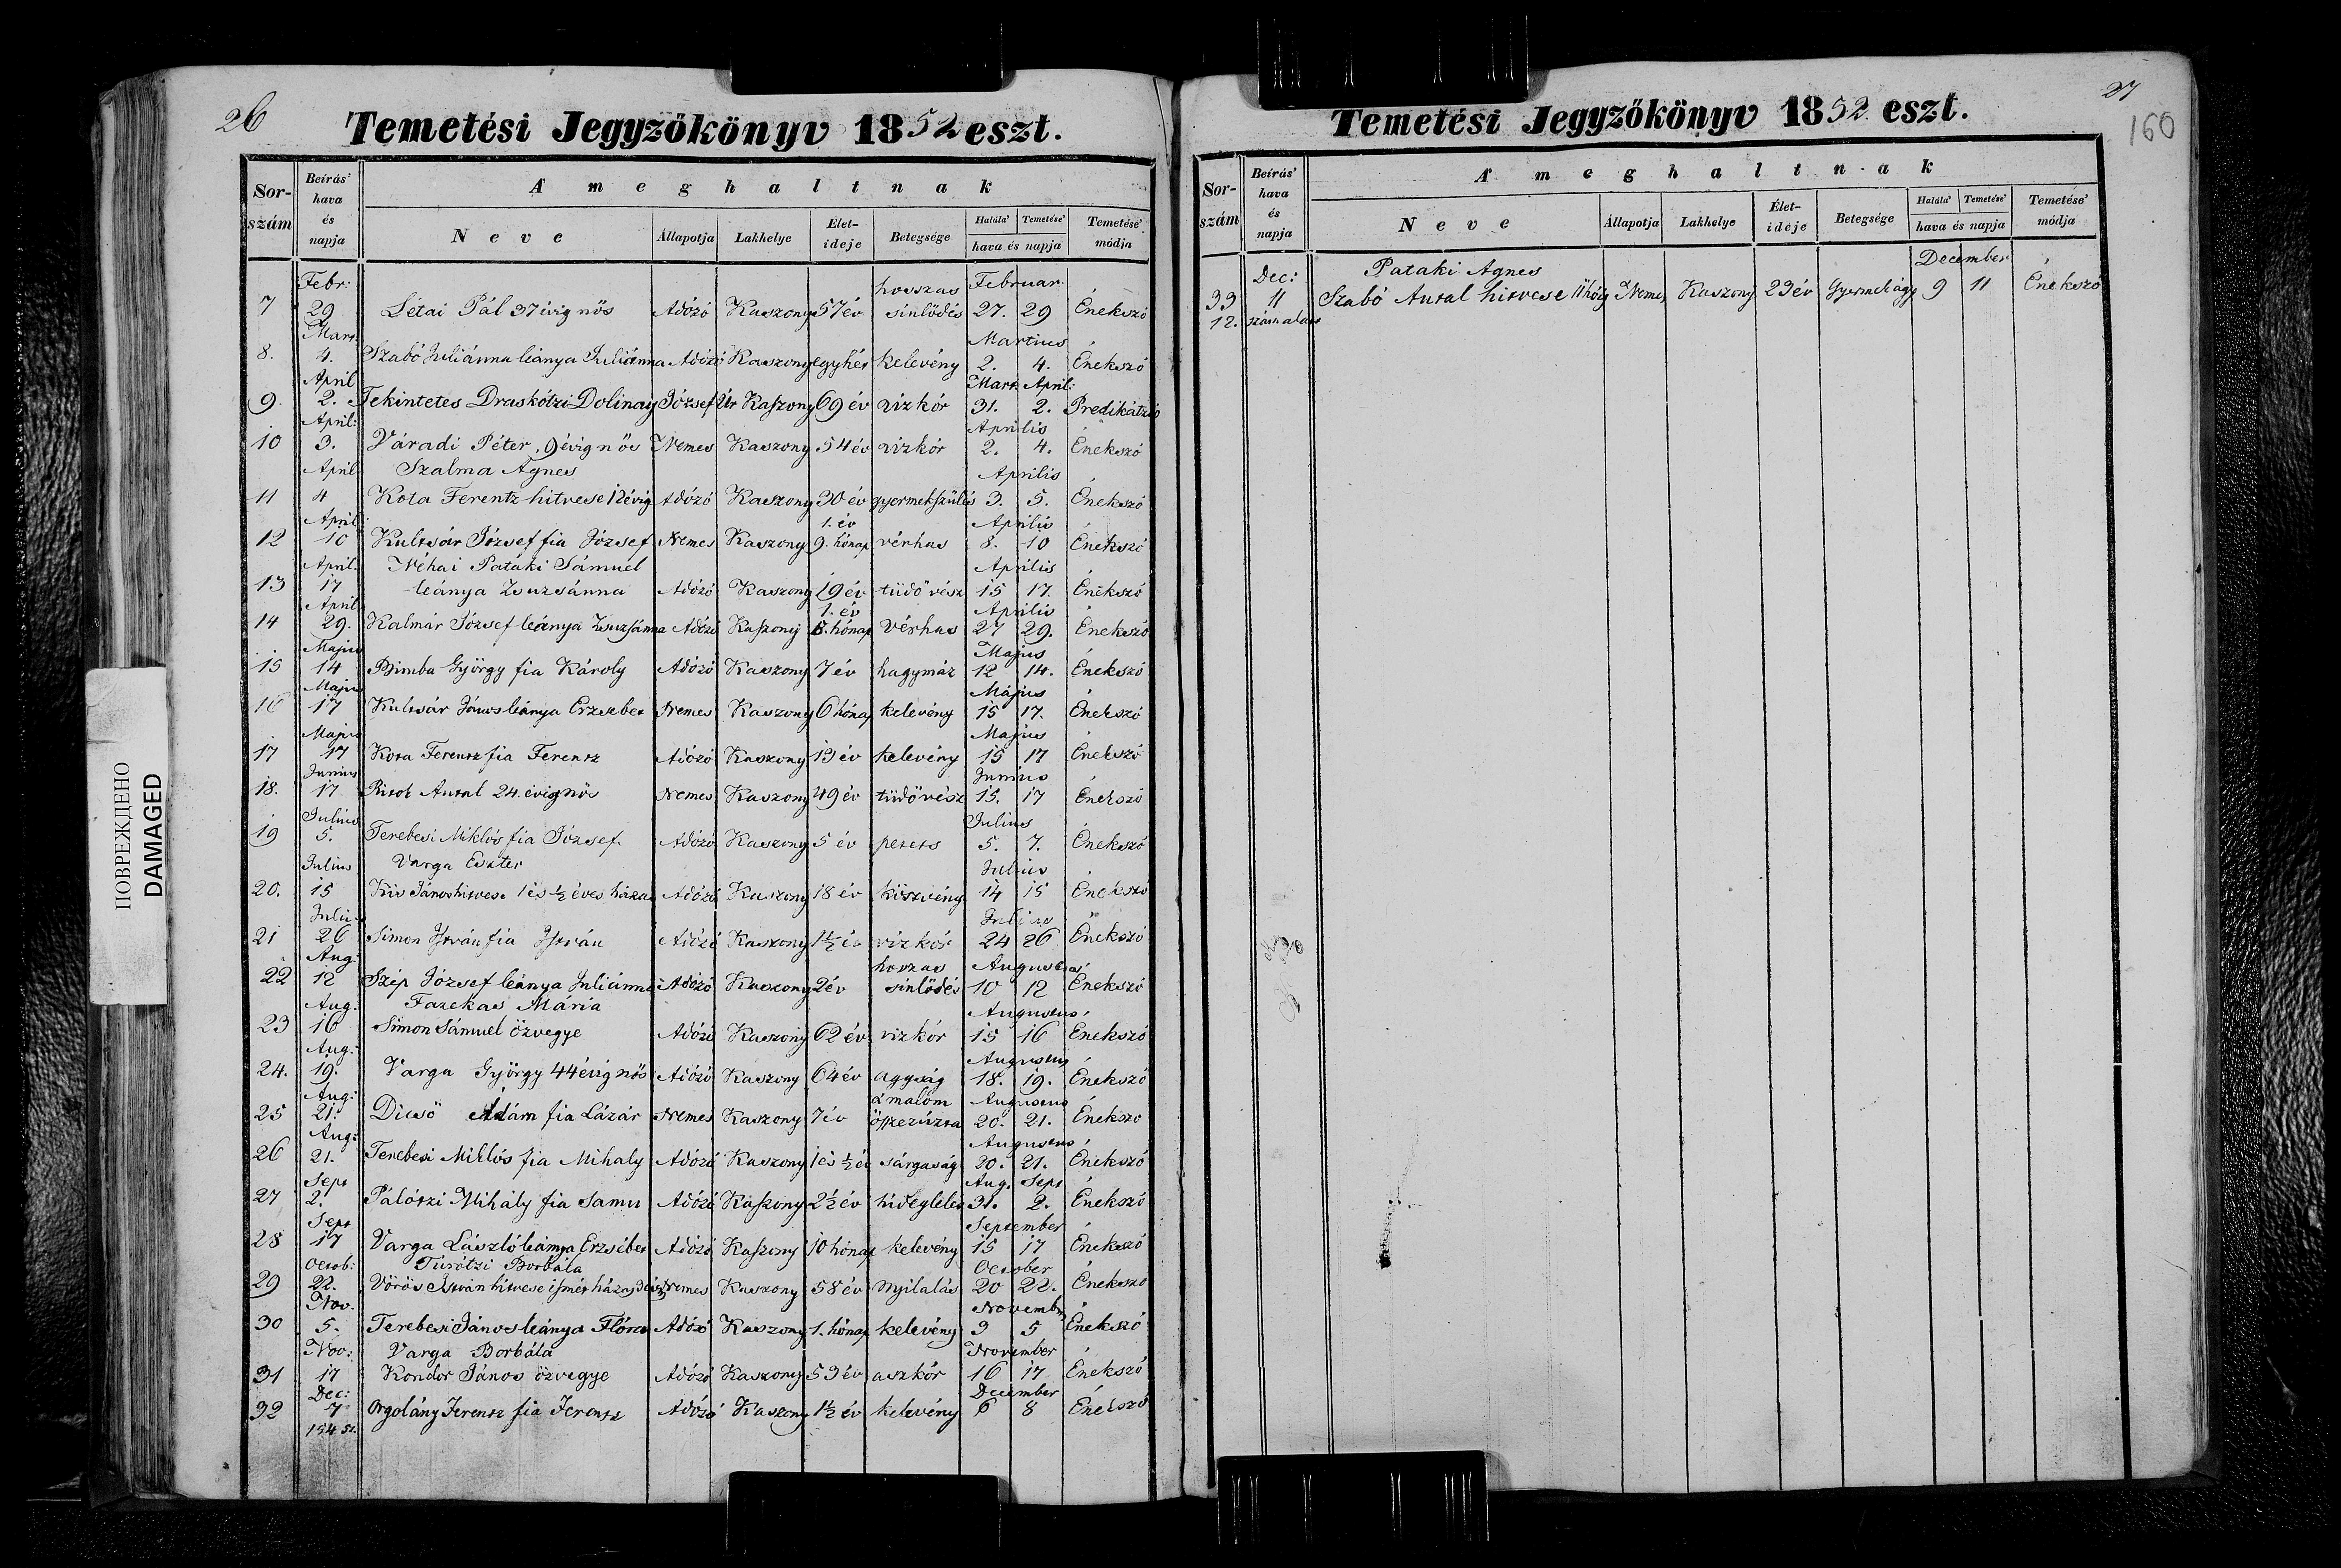 26
Temetési Jegyzőkönyv 1852 eszt.
Sor-szám Beírás' hava és napja A' meghaltnak
Neve Állapotja Lakhelye Élet-ideje Betegsége Halála' Temetése' hava és napja Temetése' módja
Febr: hosszas Februar:
7 29 Létai Pál 37 évig nős Adózó Kaszony 57 év sinlődés 27. 29 Énekszó
Mart. Martius
8. 4. Szabó Juliánna leánya Juliánna Adózó Kaszony egy hét kelevény 2. 4. Énekszó
April Mart. April:
9. 2. Tekintetes Draskótzi Dolinay József Úr Kaszony 69 év vizkór 31. 2. Predikátzió
April: Aprilis
10 3. Váradi Péter, 9 évig nős Nemes Kaszony 54 év vizkór 2. 4. Énekszó
April Szalma Agnes Aprilis
11 4 Kota Ferentz hitvese 12 évig Adózó Kaszony 30 év gyermekszülés 3. 5. Énekszó
April: 1. év Aprilis
12 10 Kultsár József fia József Nemes Kaszony 9. hónap vérhas 8. 10 Énekszó
April. Néhai Pataki Sámuel Aprilis
13 17 leánya Zsuzsánna Adózó Kaszony 19 év tüdő vész 15 17. Énekszó
April 1. év Aprilis
14 29. Kalmár József leánya Zsuzsánna Adózó Kaszony 8. hónap vérhas 27 29. Énekszó
Majus Majus
15 14 Bimba György fia Károly Adózó Kaszony 7 év hagymáz 12 14. Énekszó
Majus Május
16 17 Kultsár János leánya Erzsebet Nemes Kaszony 6 hónap kelevény 15 17. Énekszó
Majus Majus
17 17 Kota Ferentz fia Ferentz Adózó Kaszony 13 év kelevény 15 17 Énekszó
Junius Junius
18. 17 Antal 24. évig nős Nemes Kaszony 49 év tüdővész 15. 17 Énekszó
Julius Julius
19 5. Terebesi Miklós fia József. Adózó Kaszony 5 év 5. 7. Énekszó
Julius Varga Eszter Julius
20. 15 Kis János hitvese 1 és ½ éves házas Adózó Kaszony 18 év köszvény 14 15 Énekszó
Julius Julius
21 26 Simon István fia István Adózó Kaszony 1½ év vizkór 24 26 Énekszó
Aug: hoszas Augustus
22 12 Szép József leánya Juliánna Adózó Kaszony 2 év sinlődés 10 12 Énekszó
Aug. Fazekas Mária Augustus
23 16 Simon Sámuel özvegye Adózó Kaszony 62 év vizkór 15 16 Énekszó
Aug: Augustus
24. 19. Varga György 44 évig nős Adózó Kaszony 64 év aggság 18. 19. Énekszó
Aug: a malom Augustus
25 21. Dicső Ádám fia Lázár Nemes Kaszony 7 év öszezúzta 20. 21. Énekszó
Aug: Augustus
26 21. Terebesi Miklós fia Mihaly Adózó Kaszony 1 és ½ év sárgaság 20. 21. Énekszó
Sept Aug. Sept
27 2. Pálótzi Mihály fia Samu Adózó Kaszony 2½ év hideglelés 31. 2. Énekszó
Sept September
28 17 Varga László leánya Erzsébet Adózó Kaszony 10 hónap kelevény 15 17 Énekszó
Octob: Túrótzi Borbála October
29 22. Vörös István hitvese ismét házas Nemes Kaszony 58 év nyilalás 20 22. Énekszó
Nov. Novemb
30 5. Terebesi János leánya Flóra Adózó Kaszony 1. hónap kelevény 3 5 Énekszó
Nov: Varga Borbála November
31 17 Kondor János özvegye Adózó Kaszony 53 év aszkór 16 17 Énekszó
Dec: December
32 7 Orgolány Ferentz fia Ferentz Adózó Kaszony 1½ év kelevény 6 8 Énekszó
ПОВРЕЖДЕНО
DAMAGED
27
160
Temetési Jegyzőkönyv 1852. eszt.
Sor-szám Beírás' hava és napja A' meghaltnak
Neve Állapotja Lakhelye Élet-ideje Betegsége Halála' Temetése' hava és napja Temetése' módja
Dec: Pataki Agnes December
33 11 Szabó Antal hitvese 11 hóig Nemes Kaszony 23 év Gyermekágy 9 11 Énekszó
12. szám alatt